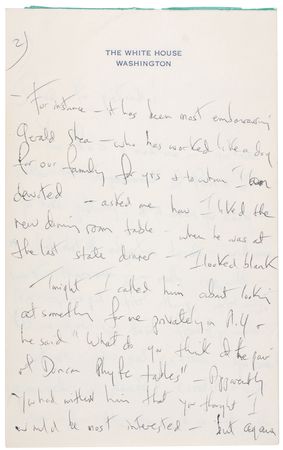 2)
THE WHITE HOUSE
WASHINGTON
- For instance - it has been most embarrassing
Gerald Shea - who has worked like a dog
for our family for yrs & to whom I am
devoted - asked me how I liked the
new dining room table - when he was at
the last state dinner - I looked blank
Tonight I called him about looking
at something for me privately in N.Y &
he said "What do you think of the pair
of Duncan Phyfe tables" - Apparently
you had written him that you thought I
would be most interested - but again